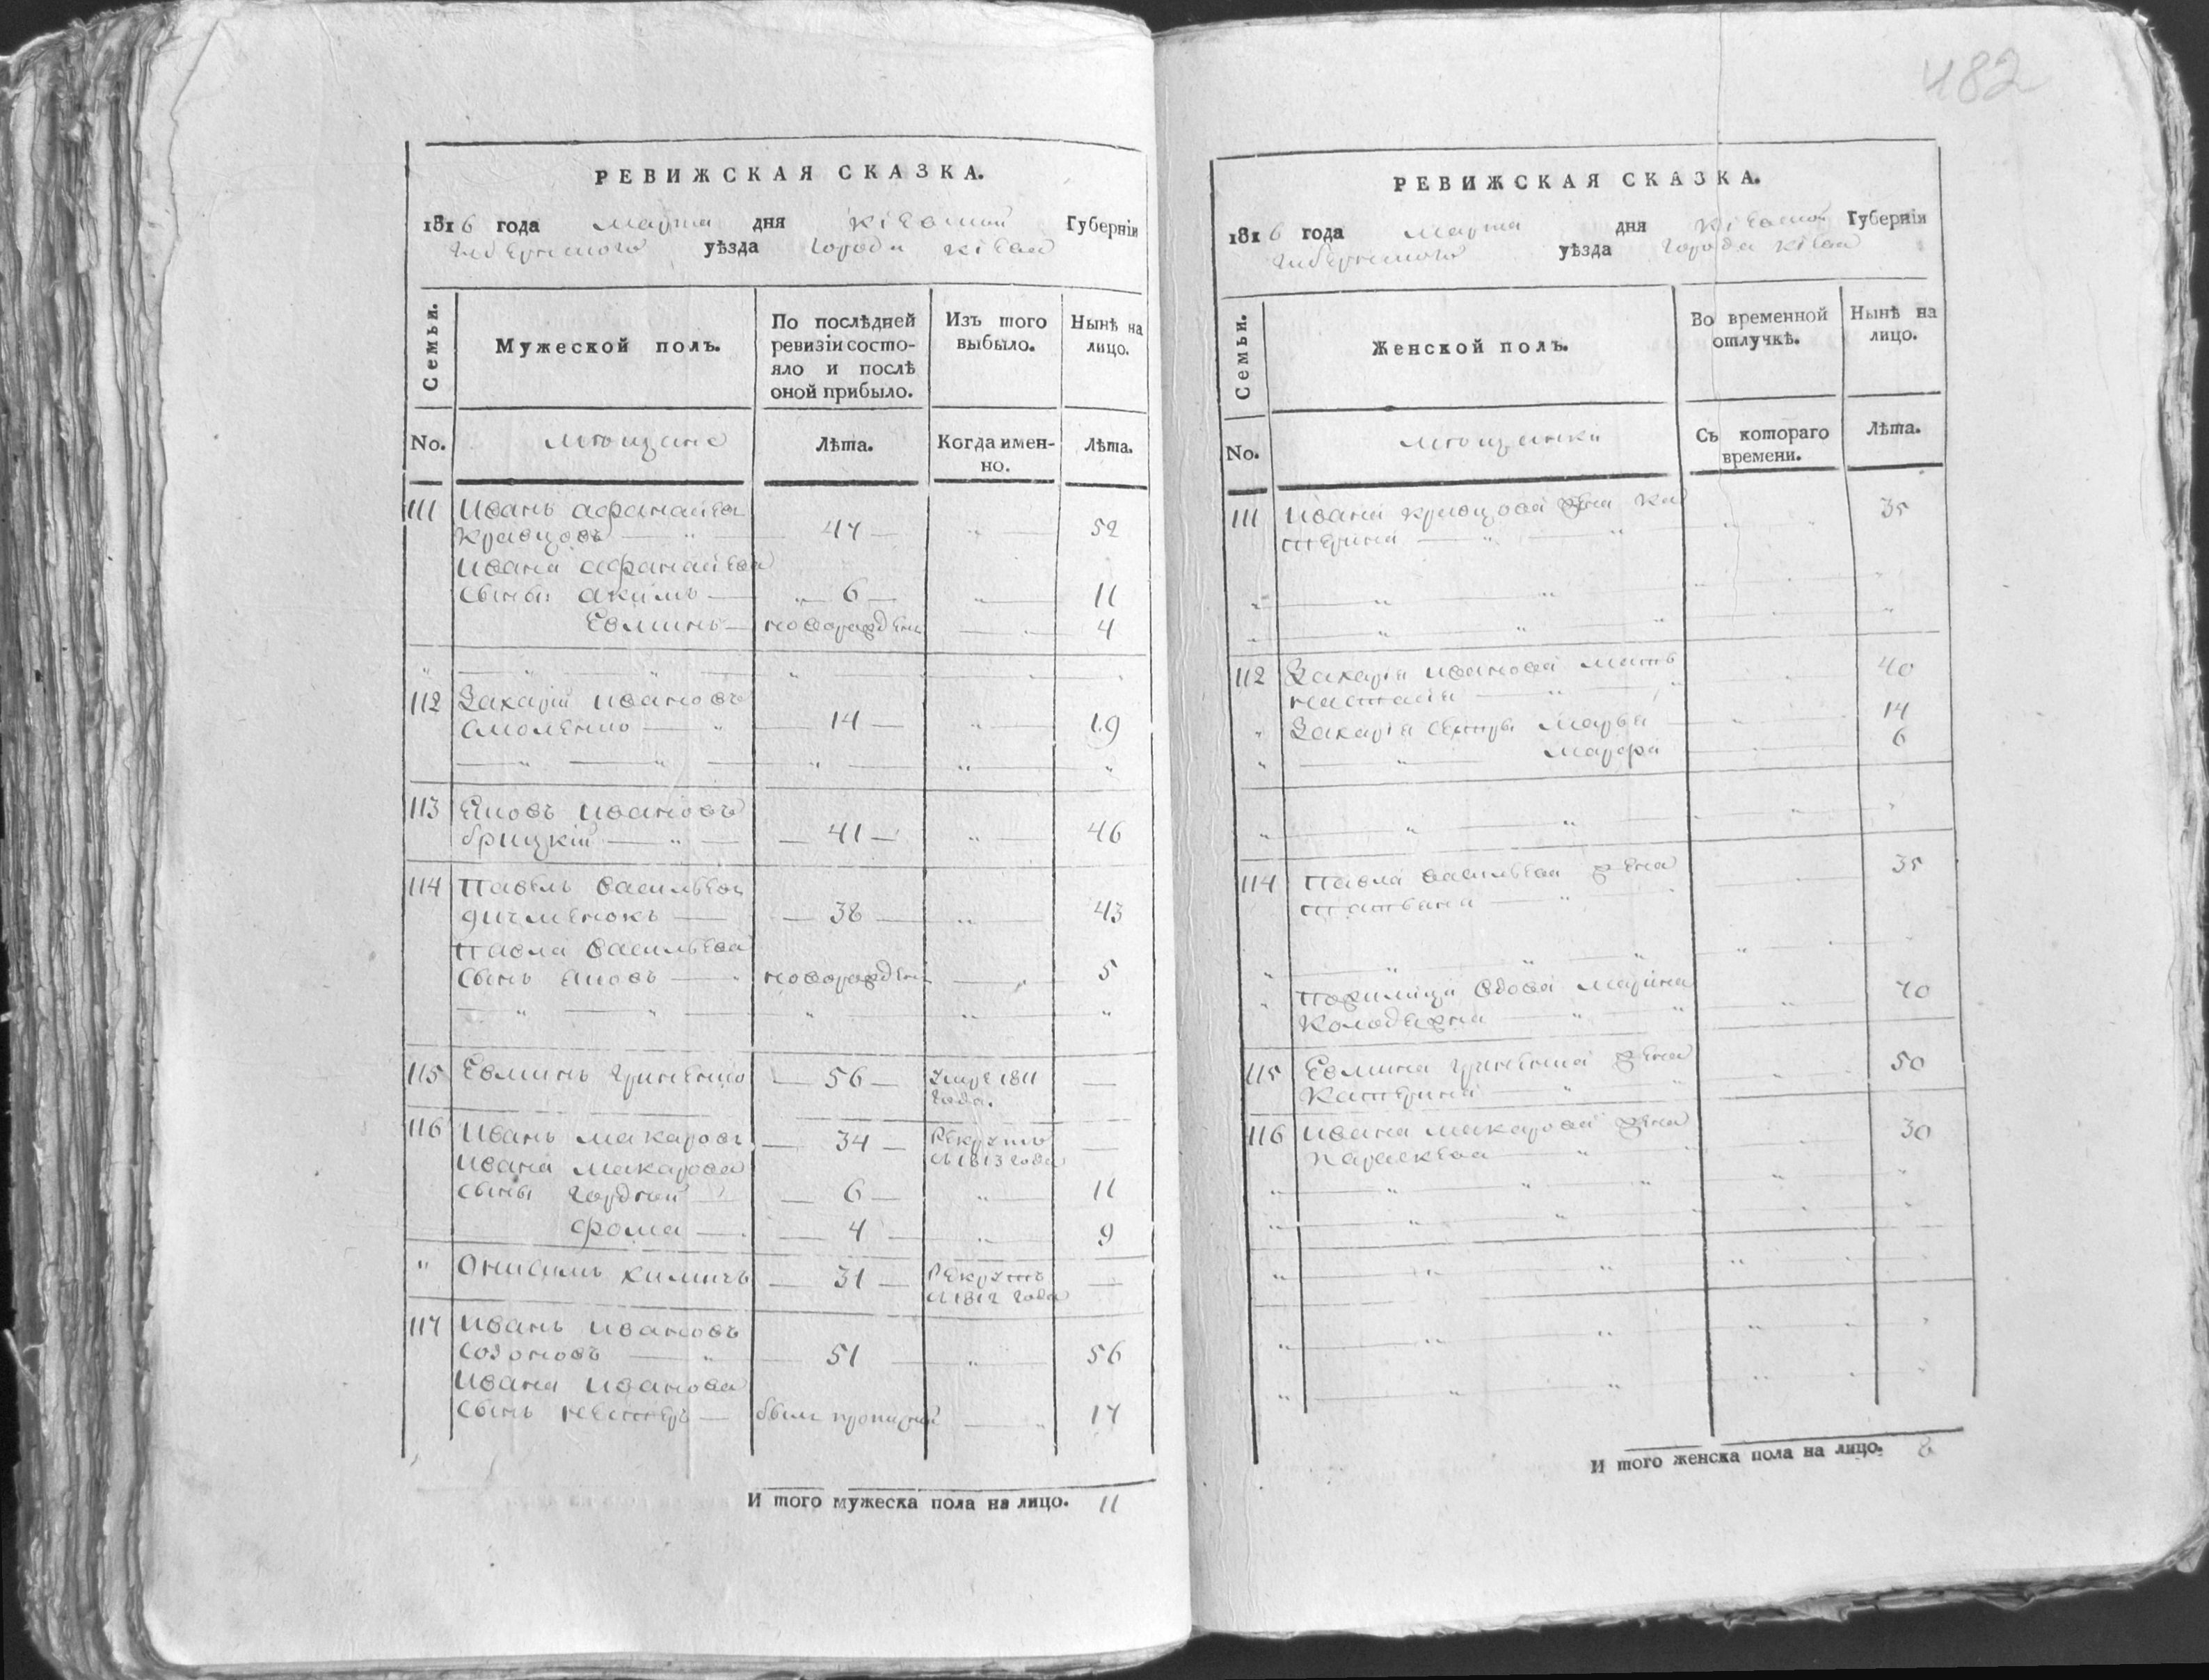 482
РЕВИЖСКАЯ СКАЗКА.
1816 года марта дня Кіевской Губерніи
уѣзда города Кіева
Семьи.
Мужеской полъ.
По послѣдней ревизіи состояло и послѣ оной прибыло.
Изъ того выбыло.
Нынѣ на лицо.
No.
мѣщане
Лѣта.
Когда именно.
Лѣта.
111 Иванъ Афанасіевъ
Кравцовъ — 47 — 52
Ивана Афанасіева
сыны Акимъ — 6 — 11
Евтихъ — новорожденъ — 4
112 Захарій Ивановъ
— 14 — 19
113 Яковъ Ивановъ
брицкій — 41 — 46
114 Павелъ Васильевъ
— 38 — 43
Павла Васильева
сынъ Яковъ — новорожденъ — 5
115 — 56 — умре 1811
года. —
116 Иванъ Макаровъ — 34 — Рекрутъ
съ 1813 года —
Ивана Макарова
сыны Гордѣй — 6 — 11
Фома — 4 — 9
" Онисимъ — 31 — Рекрутъ
съ 1812 года —
117 Иванъ Ивановъ
Созоновъ — 51 — 56
Ивана Иванова
сынъ Несторъ — былъ 17
И того мужеска пола на лицо. 11
РЕВИЖСКАЯ СКАЗКА.
1816 года марта дня Кіевской Губерніи
уѣзда города Кіева
Семьи.
Женской полъ.
Во временной отлучкѣ.
Нынѣ на лицо.
No.
мѣщанки
Съ котораго времени.
Лѣта.
111 Ивана Кравцова жена Ка
терина — 35
112 Захарія Иванова мать
Настасія — 40
" Захарія сестры Марья 14
" Марфа 6
114 Павла Васильева жена
Татьяна — 35
" вдова Марина
— 70
115 жена
Катерина — 50
116 Ивана Макарова жена
Параскева — 30
И того женска пола на лицо. 8